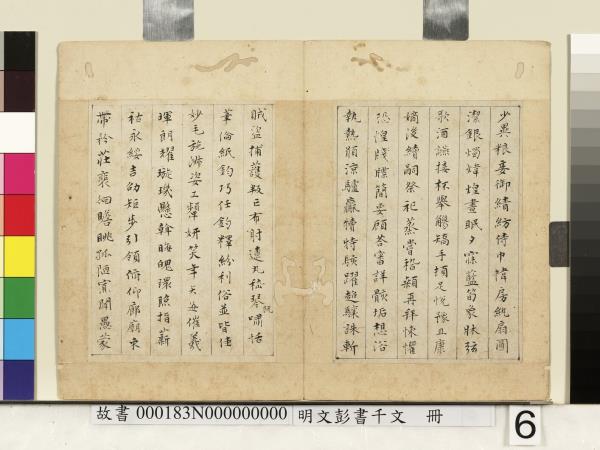 少異粮妾御績紡侍巾帷房紈扇圓
潔銀燭煒煌晝眠夕寐藍筍象牀弦
歌酒讌接杯舉觴矯手頓足悅豫且康
嫡後續嗣祭祀蒸嘗稽顙再拜悚懼
恐惶牋牒簡要顧答審詳骸垢想浴
執熱願涼驢驘犢特駭躍超驤誅斬
賊盜捕獲叛亡布射遼丸嵇琴阮嘯恬
筆倫紙鈞巧任釣釋紛利俗並皆佳
妙毛施淑姿工顰妍笑年矢每催羲
暉朗耀璇璣懸斡晦魄環照指薪
祜永綏吉劭矩步引領俯仰廊廟束
帶矜莊裴徊瞻眺孤陋寡聞愚蒙
故書 000183N000000000 明文彭書千文 冊
6